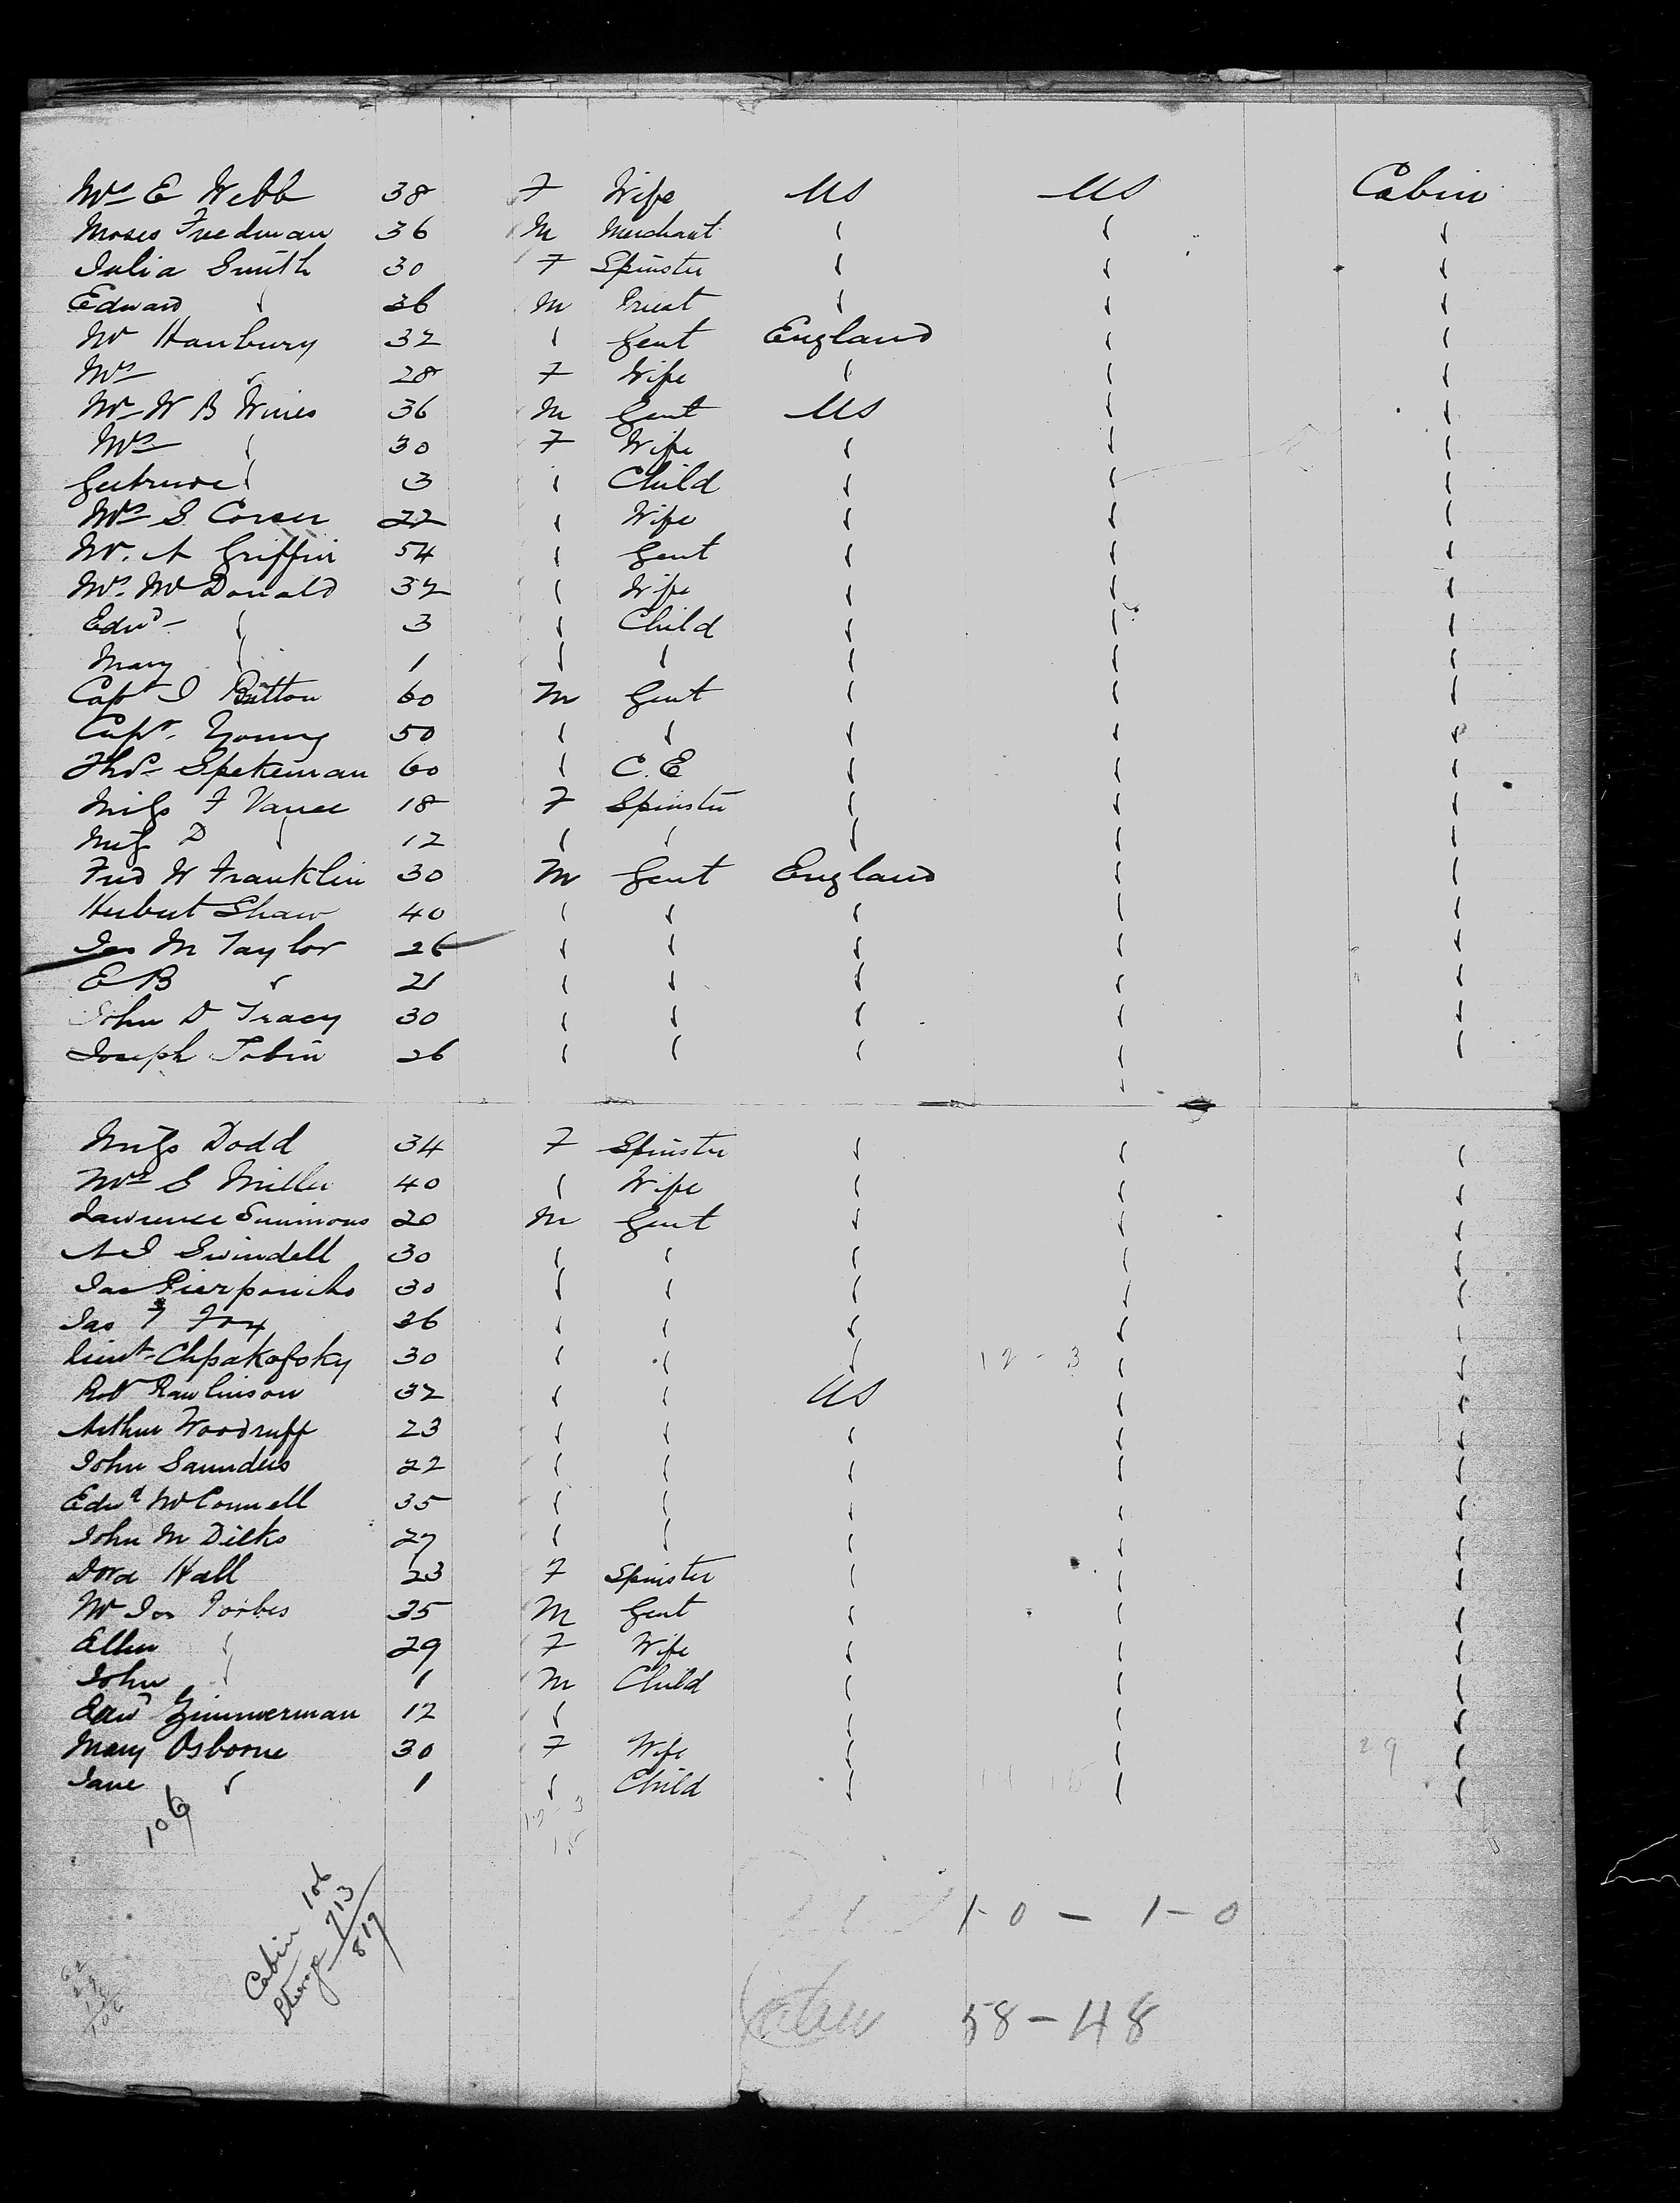 Mrs E Webb 38 F Wife US US Cabin
Moses Friedman 36 M Merchant " " "
Julia Smith 30 F Spinster " " "
Edward " 36 M Priest " " "
Mr Hanbury 32 " Gent England " "
Mrs " 28 F Wife " " "
Mr W B Wines 36 M Gent US " "
Mrs " 30 F Wife " " "
Gertrude " 3 " Child " " "
Mrs S Corser 22 " Wife " " "
Mr. A Griffin 54 " Gent " " "
Mrs. McDonald 32 " Wife " " "
Edwd " 3 " Child " " "
Mary " 1 " " " " "
Capt J Britton 60 M Gent " " "
Capt. Young 50 " " " " "
Thos Spekeman 60 " C.E " " "
Miss F Vance 18 F Spinster " " "
Miss D " 12 " " " " "
Fred W Franklin 30 M Gent England " "
Hubert Shaw 40 " " " " "
Jas M Taylor 26 " " " " "
E B " 21 " " " " "
John D Tracy 30 " " " " "
Joseph Tobin 26 " " " " "
Miss Dodd 34 F Spinster " " "
Mrs S Miller 40 " Wife " " "
Lawrence Simmons 20 M Gent " " "
A J Swindell 30 " " " " "
Jas 30 " " " " "
Jas F Fox 36 " " " " "
Lieut 30 " " " 12 - 3 " "
Robt Rawlinson 32 " " US " "
Arthur Woodruff 23 " " " " "
John Saunders 22 " " " " "
Edwd McConnell 35 " " " " "
John M Dilks 27 " " " " "
Dora Hall 23 F Spinster " " "
Mr Jas Forbes 35 M Gent " " "
Ellen " 29 F Wife " " "
John " 1 M Child " " "
Edwd Zimmerman 12 " " " "
Mary Osborne 30 F Wife " " 29 "
Jane " 1 " Child " " "
106
12 - 3
15
Cabin 106
Steerage 713
819
1-0 - 1-0
58-48